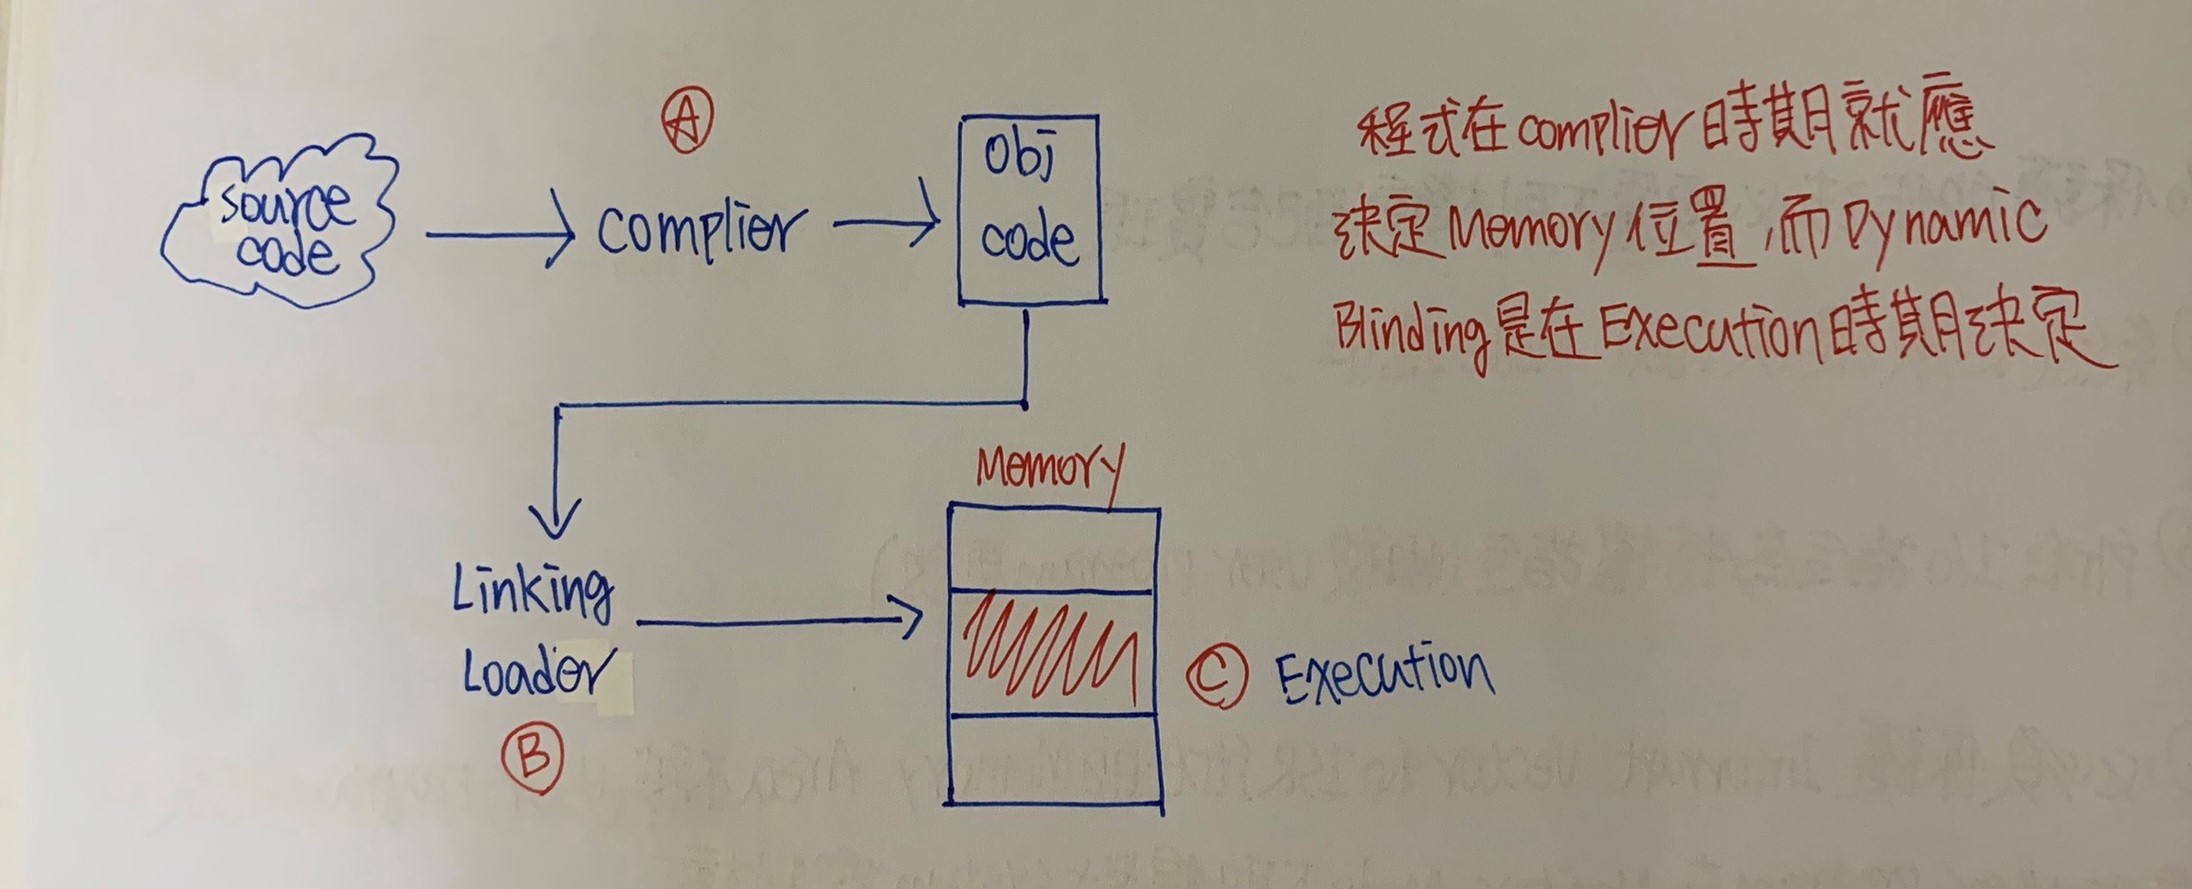 A
source
code
complier
Obj
code
程式在complier時期就應
決定Memory位置,而Dynamic
Blinding是在Execution時期決定
Memory
Linking
Loader
B
C Execution